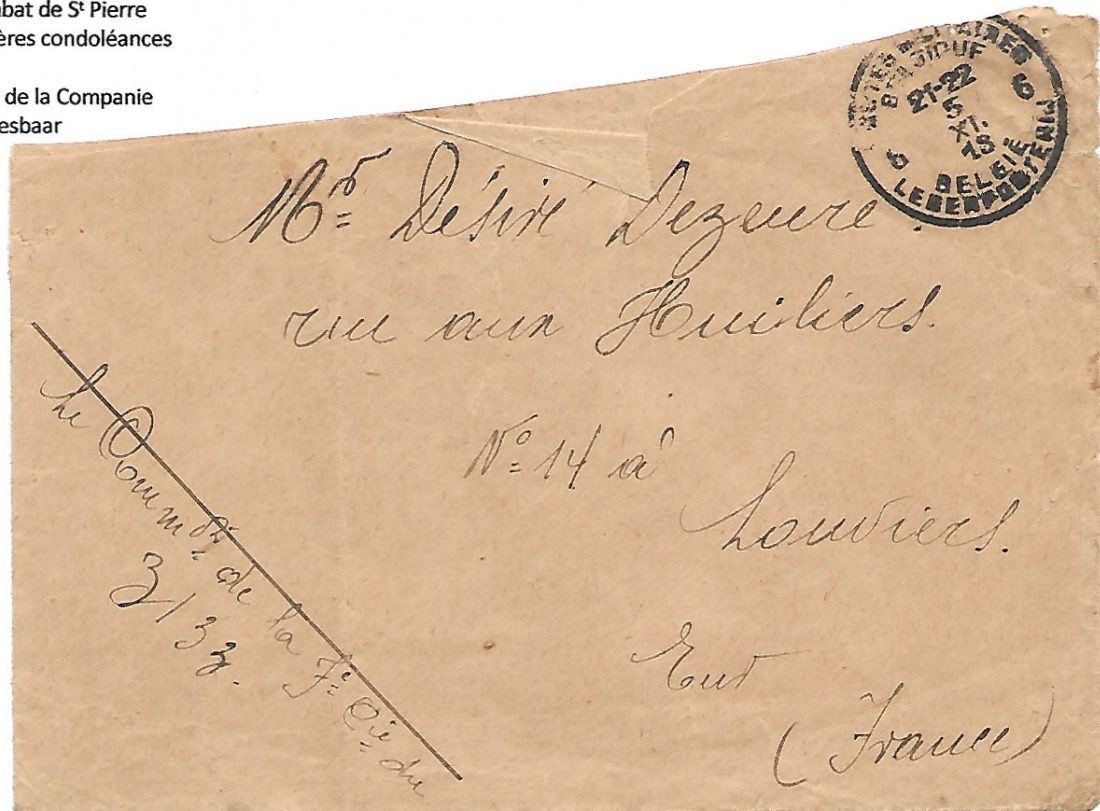 bat de Sᵗ Pierre
ères condoléances
de la Companie
esbaar
POSTES MILITAIRES
BELGIQUE
21-22
5
XI.
18
6 6
BELGIE
LEGERPOSTERIJ
Mʳ Désiré Dezeure
rue aux Huiliers.
Nº 14 à
Louviers.
Eur
(France)
Le Commdt de la 7e Cie du
3/33.